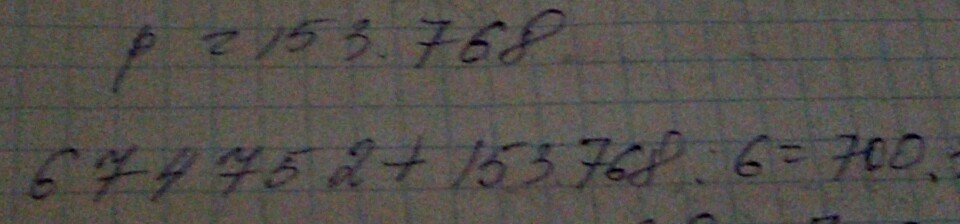 p = 153.768
674752 + 153.768 : 6 = 700.